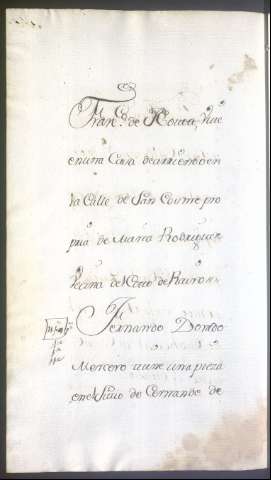 Fran.co de Novoa, vive
en una Casa de arriendo en
la Calle de San Cosme pro
pria de Maria Rodriguez
vecina de el Coto de
Fernando Dorado
Mercero tiene una pieza
en el Sitio de Cernande de